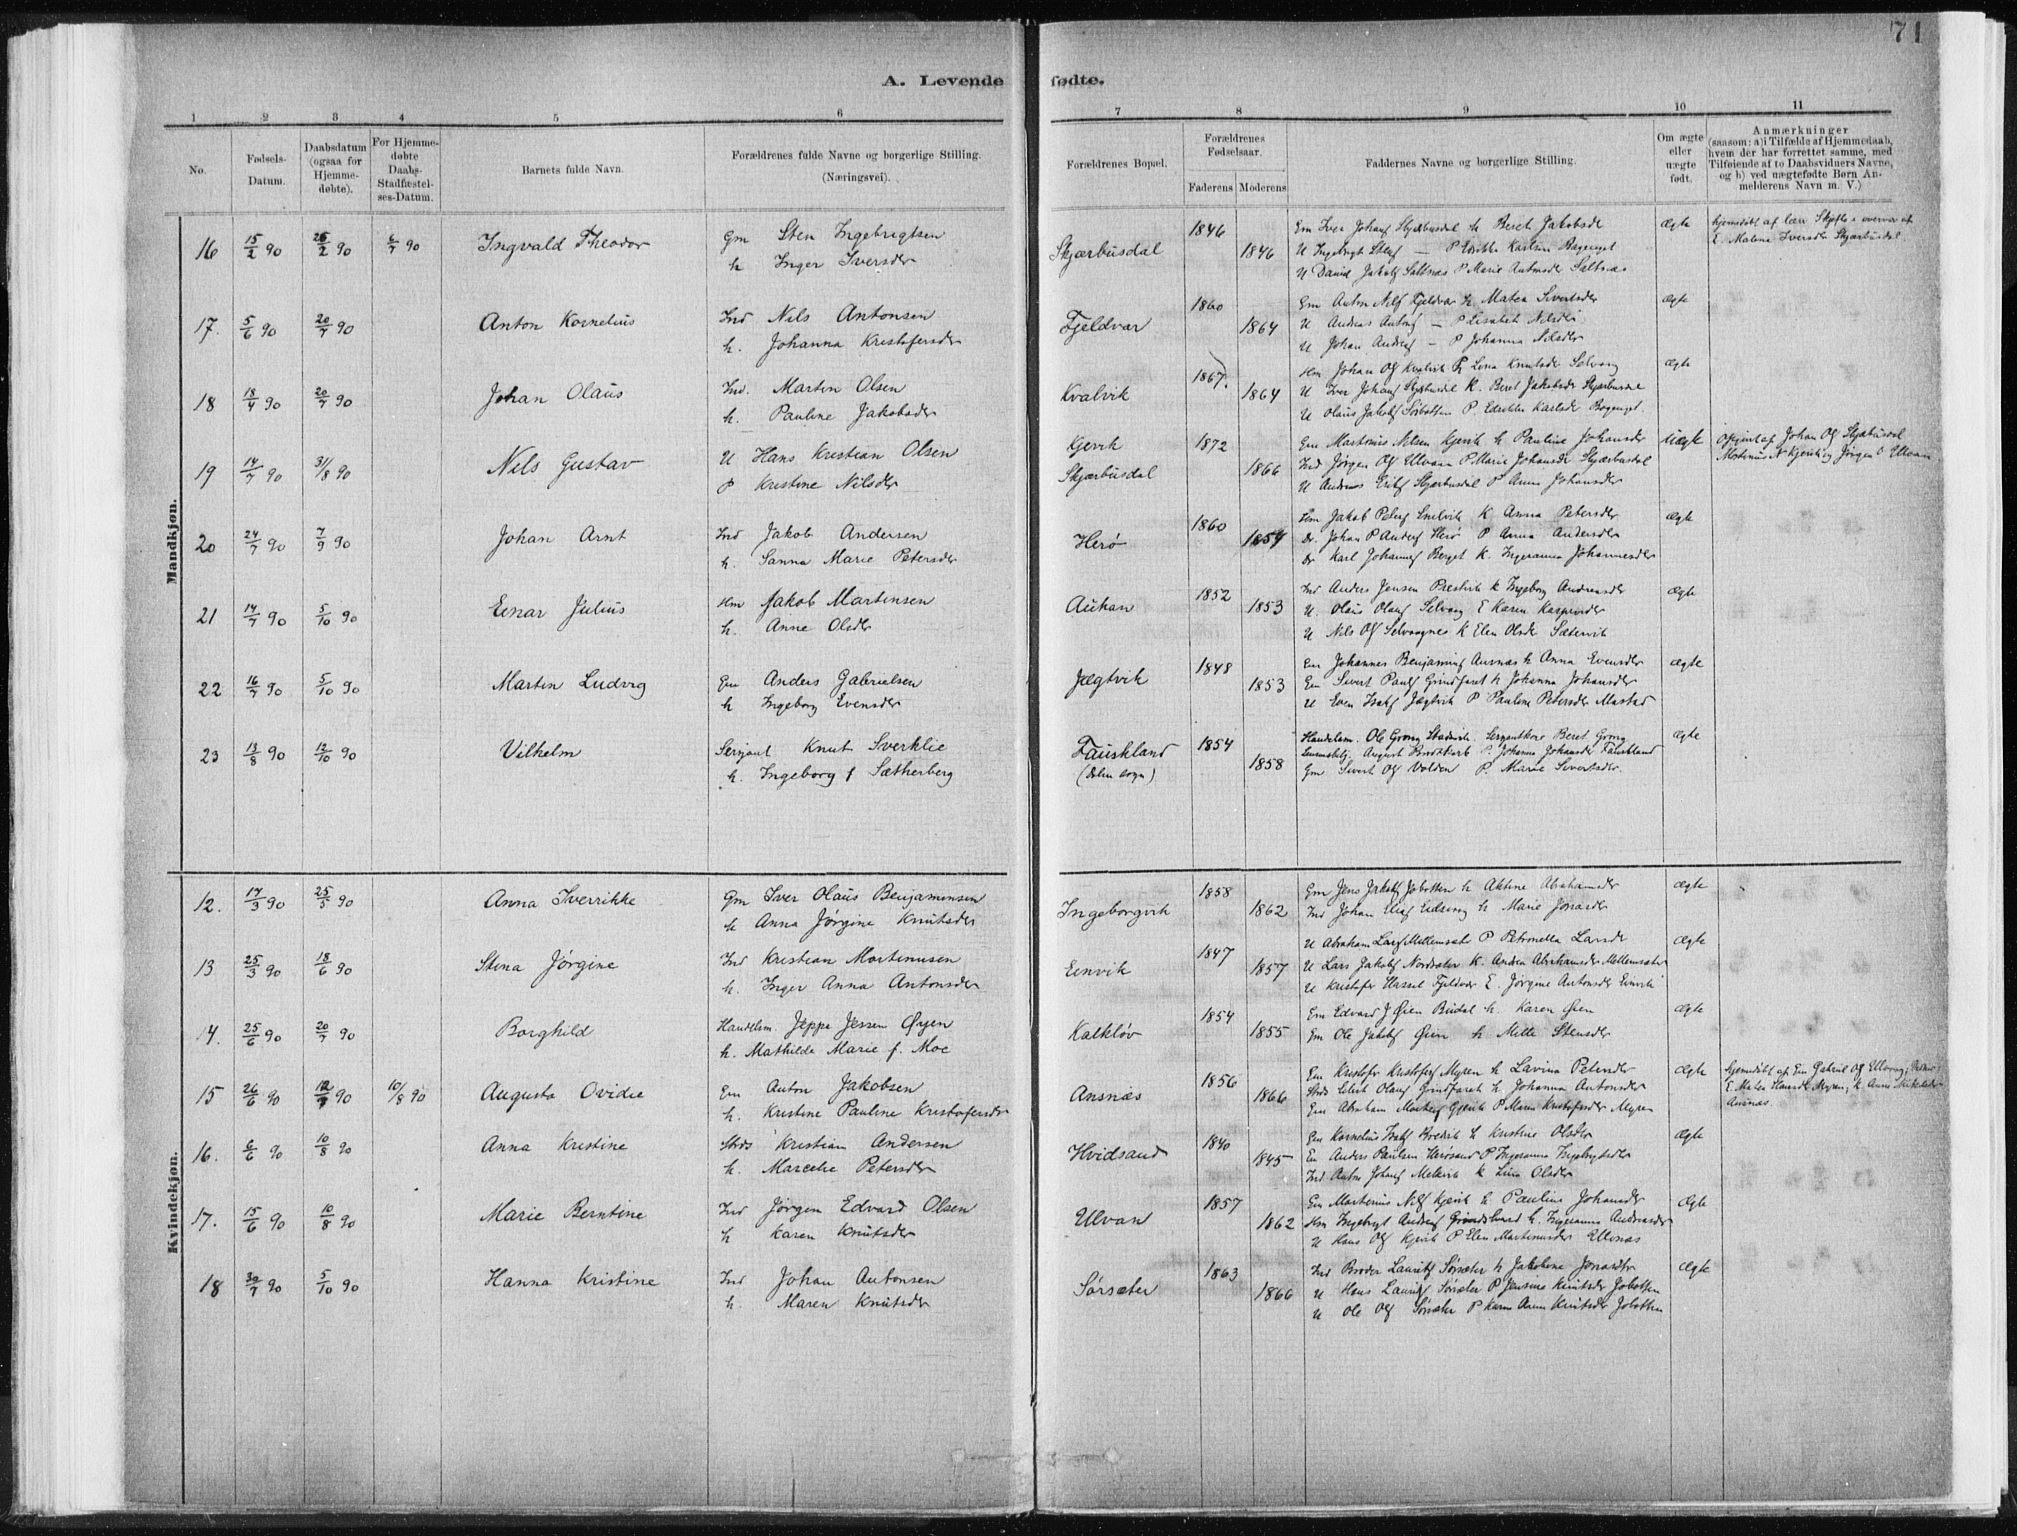 71
A. Levende fødte.
1 2 3 4 5 6 7 8 9 10 11
No.
Fødsels-
Datum.
Daabsdatum
(ogsaa for
Hjemme-
døbte).
For Hjemme-
døbte
Daabs-
Stadfæstel-
ses-Datum.
Barnets fulde Navn.
Forældrenes fulde Navne og borgerlige Stilling.
(Næringsvei).
Forældrenes Bopæl.
Forældrenes
Fødselsaar.
Faderens Moderens
Faddernes Navne og borgerlige Stilling.
Om ægte
eller
uægte
født.
Anmærkninger
(saasom: a) i Tilfælde af Hjemmedaab,
hvem der har forrettet samme, med
Tilføiende af to Daabsvidners Navne,
og b) ved uægtefødte Børn An-
melderens Navn m. V.)
Mandkjøn.
16 15/2 90 26/2 90 6/7 90 Ingvald Theodor Gm Sten Ingebrigtsen
h Inger Iversdr
Skjærbusdal 1846 1846
Gm Iver Johans Skjærbusdal h Beret Jakobsdr
U Ingebrigt Stens — P Edrikke Karlsdr Bogenget
U David Jakobs Saltnæs P Marie Antonsdr Saltnæs
Ægte
17. 5/6 90 20/7 90 Anton Kornelius Ind Nils Antonsen
h. Johanna Kristofersdr
Fjeldvar 1860 1864
Gm Anton Nils Fjeldvar h Matea Sivertsdr
U Andreas Antons — P Lisabet Nilsdr
U Johan Andreas — P Johanna Nilsdr
Ægte
18 18/4 90 20/7 90 Johan Olaus Ind. Martin Olsen
h. Pauline Jakobsdr
Kvalvik 1867. 1864
Hm Johan Ols Kvalvik P Lena Knutsdr Selvaag
U Iver Johans Skjærbusdal K. Beret Jakobsdr Skjærbusdal
U Olaus Jakobs Sørbotten P. Edrikke Karlsdr Bogenget.
Ægte
19 14/7 90 31/8 90 Nils Gustav U Hans Kristian Olsen
P Kristine Nilsdr
Kjervik
Skjærbusdal 1872 1866
Gm Martinus Nilsen Kjervik h Pauline Johansdr
Ind Jørgen Ols Ulvan P Marie Johansdr Skjærbusdal
U Andreas Eriks Skjærbusdal P Anna Johansdr
Uægte
20 24/7 90 7/9 90 Johan Arnt Ind Jakob Andersen
h. Sanna Marie Petersdr
Herø 1860 1854
Hm Jakob Peters Smelvik K Anna Petersdr
Dr. Johan P Anders Herø P Anna Andersdr
Dr Karl Johannes Berget K. Ingeranna Johannesdr
Ægte
21 14/7 90 5/10 90 Einar Julius Hm Jakob Martinsen
h. Anne Olsdr
Auhan 1852 1853
Ind Anders Jensen Prestvik h Ingeborg Andreasdr
U. Olaus Olaus Selvaag E Karen Kaspersdr
U Nils Ols Selvaagnes K Elen Olsdr Sætervik
Ægte
22 16/7 90 5/10 90 Martin Ludvig Gm Anders Gabrielsen
h Ingeborg Evensdr
Jægtvik 1848 1853
Gm Johannes Benjamins Ansnæs h Anna Evensdr
Gm Sivert Pauls Grindfaret h Johanna Johansdr
U Even Isaks Jægtvik P Pauline Petersdr Mastad
Ægte
23 13/8 90 12/10 90 Vilhelm Serjant Knut Sverklie
h. Ingeborg f Sætherberg
Fauskland
(Dolm sogn) 1854 1858
Handelsm. Ole Grong Stadsvik. Sergentkone Beret Grong
August P. Johanna Johansdr Fauskland
Gm Sivert Ols Volden P. Marie Sivertsdr.
Ægte
Kvindekjøn.
12. 17/3 90 25/5 90 Anna Iverrikke Gm Iver Olaus Benjaminsen
h Anna Jørgine Knutsdr
Ingeborgvik 1858 1862
Gm Jens Jakobs Jøbotten h Aktine Abrahamsdr
Ind Johan h Marie Jonasdr
Ægte
13 25/3 90 18/6 90 Stina Jørgine Ind Kristian Martinusen
h. Inger Anna Antonsdr
Eenvik 1847 1857
U Abraham Lars Mellemsæter P Petronella Larsdr
U Lars Jakobs Nordsæter K. Andrea Abrahamsdr Mellemsæter
U Kristofer Hassel Fjeldvær E. Jørgine Antonsdr Eenvik
Ægte
14. 25/6 90 20/7 90 Borghild Handelsm. Jeppe Jessen Øyen
h. Mathilde Marie f. Moe
Kalkløv 1854 1855
Gm Edvard J Øien Budal h. Karen Øien
Gm Ole Jakobs Øien h. Mille Stensdr
Ægte
15 26/6 90 12/7 90 10/8 90 Augusta Ovidie Gm Anton Jakobsen
h. Kristine Pauline Kristofersdr
Ansnæs 1856 1866
Gm Kristofer Kristofers Myren h Lavina Petersdr
Olaus Grindfaret h Johanna Antonsdr
Gm Abraham Martins Gjervik P Maren Kristofersdr Myren
Ægte
Hjemmedøbt af Gm Gabriel Ols Ulvaag,
E. Matea Hansdr Myren, K Anne
Ansnæs.
16. 6/6 90 10/8 90 Anna Kristine Stds Kristian Andersen
h. Marcelie Petersdr
Hvidsand 1840 1845
Gm Kornelius Isaks Bredvik h Kristine Olsdr
Gm Anders Paulsen Herøsund P Ingeranna Ingebrigtsdr
Ind Anton Johans Melkvik K Lina Olsdr
Ægte
17. 15/6 90 10/8 90 Marie Berntine Ind Jørgen Edvard Olsen
h Karen Knutsdr
Ulvan 1857 1862
Gm Martinus Nils Kjervik h Pauline Johansdr
Hm Ingebrigt Andreas h. Ingeranna Andreasdr
U Hans Ols Kjervik P Elen Martinusdr Ulvnæs
Ægte
18 30/7 90 5/10 90 Hanna Kristine Ind Johan Antonsen
h Maren Knutsdr
Sørsæter 1863 1866
Ind Broder Laurits Sørsæter h Jakobine Jonasdr
U Hans Laurits Sørsæter P Jensine Knutsdr Jøbotten
U Ole Ols Sørsæter P Karen Anna Knutsdr Jøbotten
Ægte